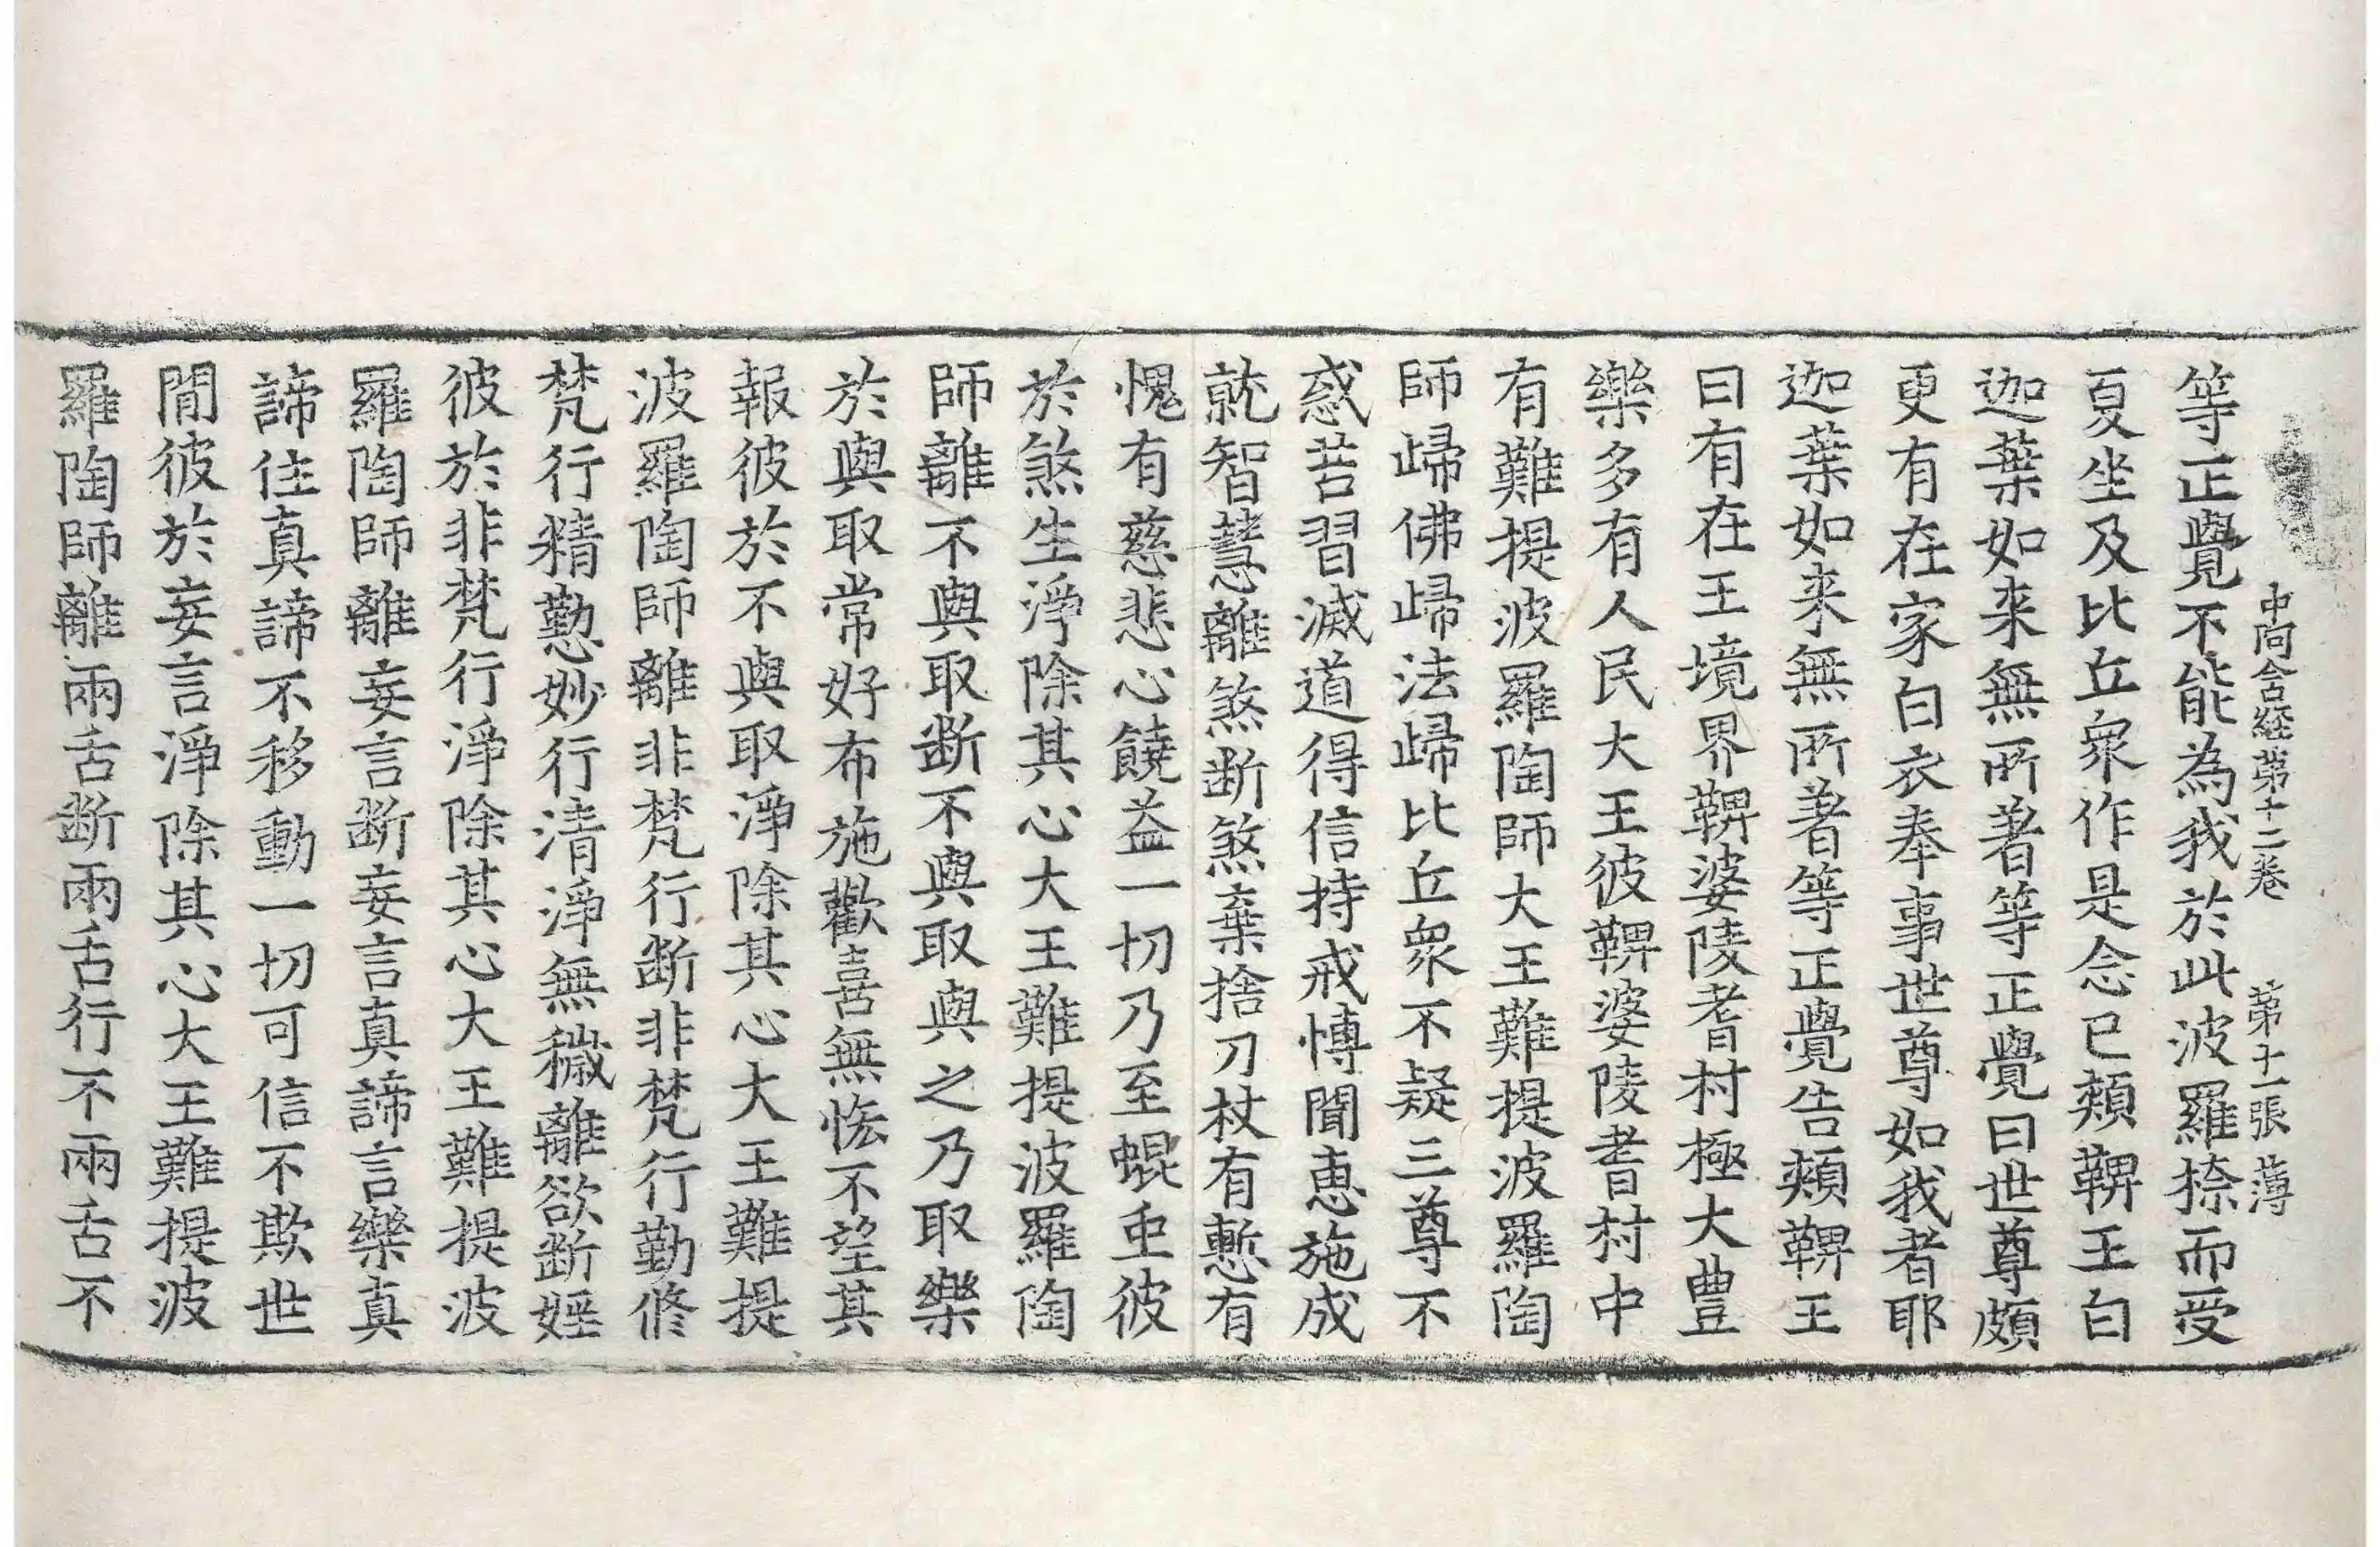 中阿含経苐十二卷 苐十一張 薄
等正覺不能為我於此波羅㮈而受
夏坐及比丘衆作是念已頰鞞王白
迦葉如来無所著等正覺曰世尊頗
更有在家白衣奉事世尊如我者耶
迦葉如来無所著等正覺告頰鞞王
曰有在王境界鞞婆陵耆村極大豊
樂多有人民大王彼鞞婆陵耆村中
有難提波羅陶師大王難提波羅陶
師歸佛歸法歸比丘衆不疑三尊不
惑苦習滅道得信持戒愽聞恵施成
就智慧離煞断煞棄捨刀杖有慙有
愧有慈悲心饒益一切乃至蜫虫彼
於煞生淨除其心大王難提波羅陶
師離不與取断不與取與之乃取樂
於與取常好布施歡喜無悋不望其
報彼於不與取淨除其心大王難提
波羅陶師離非梵行断非梵行勤修
梵行精懃妙行清淨無穢離欲断婬
彼於非梵行淨除其心大王難提波
羅陶師離妄言断妄言真諦言樂真
諦住真諦不移動一切可信不欺世
閒彼於妄言淨除其心大王難提波
羅陶師離兩舌断兩舌行不兩舌不